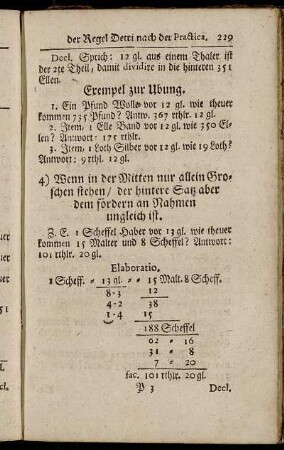 der Regel Detri nach der Practica. 229
Decl. Sprich: 12 gl. aus einem Thaler ist
der 2te Theil, damit dividire in die hinteren 351
Ellen.
Exempel zur Ubung.
1. Ein Pfund Wolle vor 12 gl. wie theuer
kommen 735 Pfund? Antw. 367 rthlr. 12 gl.
2. Item, 1 Elle Band vor 12 gl. wie 350 El-
len? Antwort: 175 rthlr.
3. Item, 1 Loth Silber vor 12 gl. wie 19 Loth?
Antwort: 9 rthl. 12 gl.
4) Wenn in der Mitten nur allein Gro-
schen stehen/ der hintere Satz aber
dem fördern an Nahmen
ungleich ist.
Z. E. 1 Scheffel Haber vor 13 gl. wie theuer
kommen 15 Malter und 8 Scheffel? Antwort:
101 rthlr. 20 gl.
Elaboratio.
1 Scheff. = 13 gl. = 15 Malt. 8 Scheff.
8-3 12
4-2 38
1-4 15
188 Scheffel
62 = 16
31 = 8
7 = 20
fac. 101 rthlr. 20 gl.
P 3 Decl.